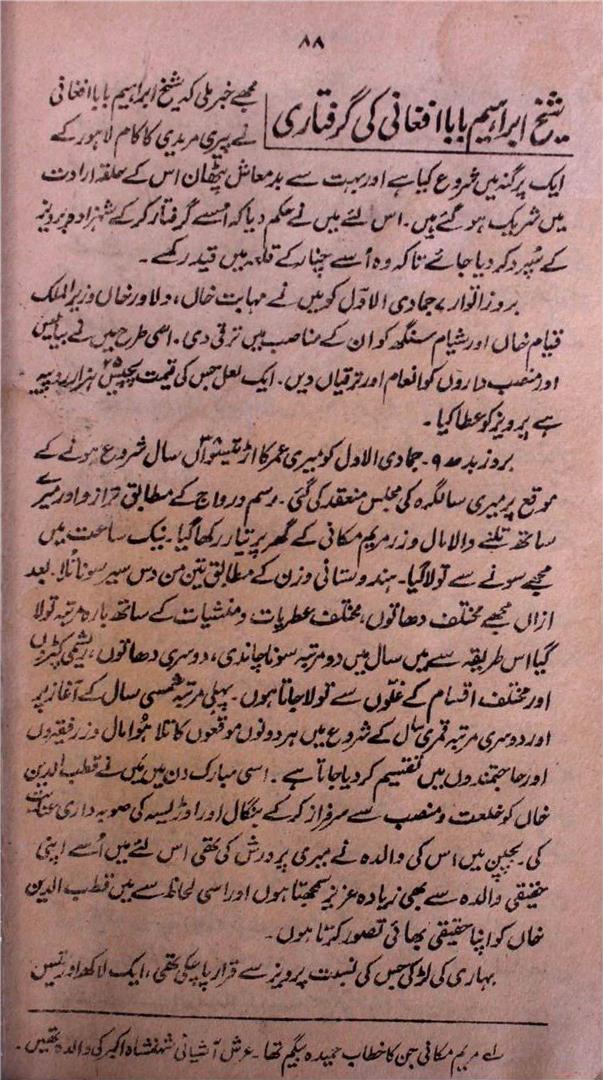 ۸۸
شیخ ابراہیم بابا افغانی کی گرفتاری
مجھے خبر ملی کہ شیخ ابراہیم بابا افغانی
نے پیری مریدی کا کام لاہور کے
ایک پرگنہ میں شروع کیا ہے اور بہت سے بدمعاش پٹھان اس کے حلقہ ارادت
میں شریک ہو گئے ہیں۔ اس لئے میں نے حکم دیا کہ اُسے گرفتار کرکے شہزادہ پرویز
کے سُپرد کر دیا جائے تاکہ وہ اُسے چنار کے قلعہ میں قید رکھے۔
بروز اتوار ۷ جمادی الاوّل کو میں نے مہابت خاں، دلاور خاں وزیر الملک
قیام خاں اور شیام سنگھ کو ان کے مناصب میں ترقی دی۔ اسی طرح میں نے بیالیس
اور منصب داروں کو انعام اور ترقیاں دیں۔ ایک لعل جس کی قیمت پچیس ۲۵ ہزار روپیہ
ہے پرویز کو عطا کیا۔
بروز بدھ ۹۔ جمادی الاول کو میری عمر کا اڑتیسواں سال شروع ہونے کے
موقع پر میری سالگرہ کی مجلس منعقد کی گئی۔ رسم و رواج کے مطابق ترازو اور میرے
ساتھ تلنے والا مال و زر مریم مکانی کے گھر پر تیار رکھا گیا۔ نیک ساعت میں
مجھے سونے سے تولا گیا۔ ہندوستانی وزن کے مطابق تین من دس سیر سونا تُلا۔ بعد
ازاں مجھے مختلف دھاتوں، مختلف عطریات و منشیات کے ساتھ بارہ مرتبہ تولا
گیا اس طریقہ سے میں سال میں دو مرتبہ سونا چاندی، دوسری دھاتوں، ریشمی کپڑوں
اور مختلف اقسام کے غلّوں سے تولا جاتا ہوں۔ پہلی مرتبہ شمسی سال کے آغاز پر
اور دوسری مرتبہ قمری سال کے شروع میں ہر دونوں موقعوں کا تلا ہُوا مال و زر فقیروں
اور حاجتمندوں میں تقسیم کر دیا جاتا ہے۔ اسی مبارک دن میں مَیں نے قطب الدین
خاں کو خلعت و منصب سے سرفراز کرکے بنگال اور اوڑیسہ کی صوبہ داری عنایت
کی۔ بچپن میں اس کی والدہ نے میری پرورش کی تھی اس لئے میں اُسے اپنی
حقیقی والدہ سے بھی زیادہ عزیز سمجھتا ہوں اور اسی لحاظ سے میں قطب الدین
خاں کو اپنا حقیقی بھائی تصور کرتا ہوں۔
بہاری کی لڑکی جس کی نسبت پرویز سے قرار پا چکی تھی، ایک لاکھ اور تیس
لے مریم مکانی جن کا خطاب حمیدہ بیگم تھا۔ عرش آشیانی شہنشاہ اکبر کی والدہ تھیں۔